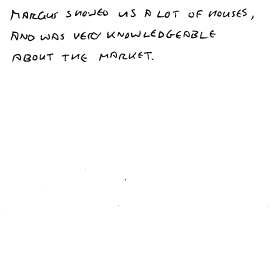 MARGUS SHOWED US A LOT OF HOUSES,
AND WAS VERY KNOWLEDGEABLE
ABOUT THE MARKET.